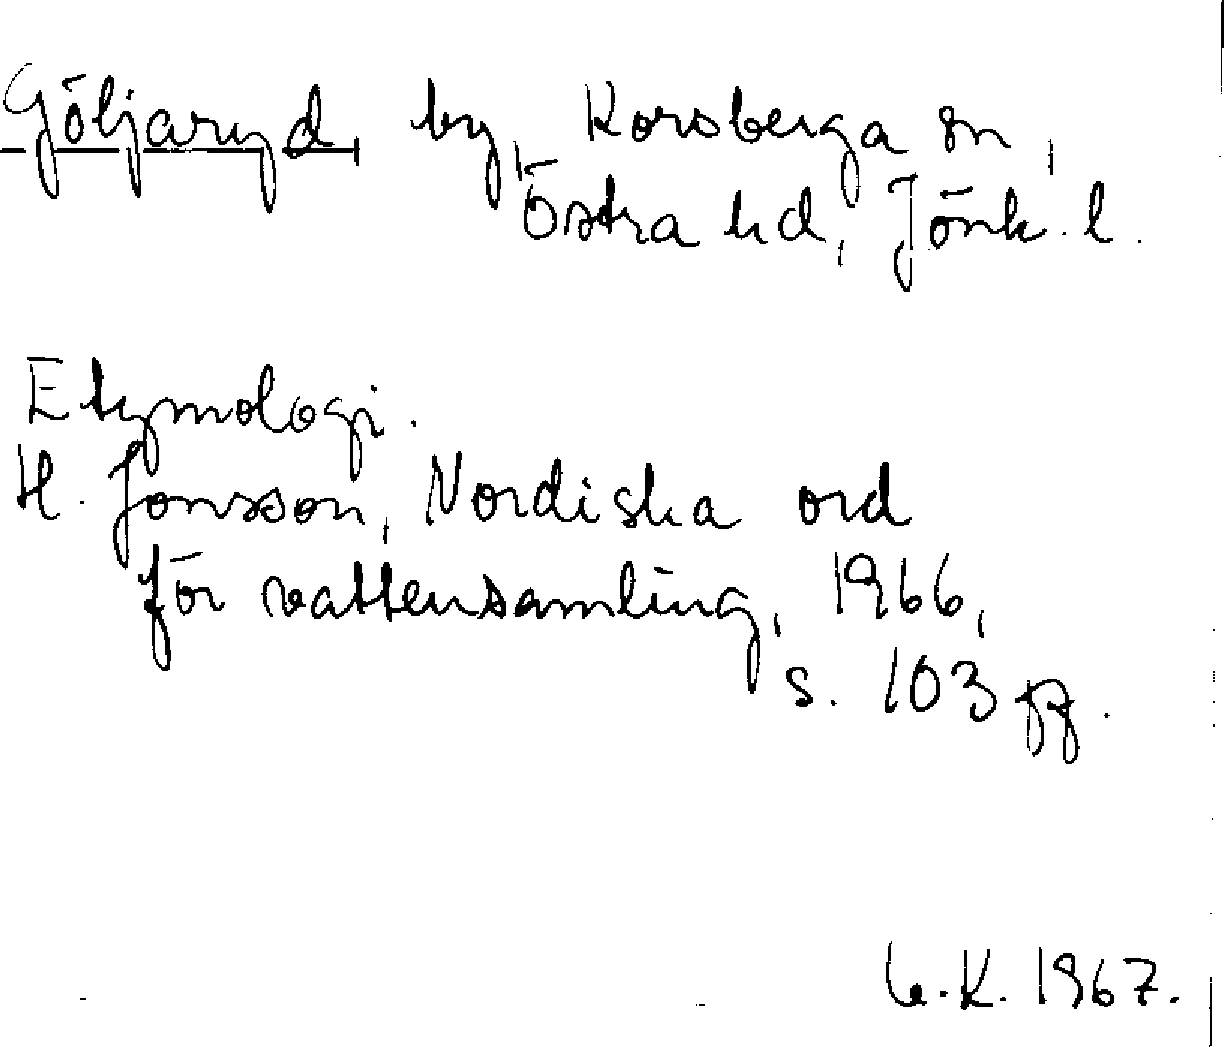 Göljaryd, by, Korsberga sn,
Östra hd, Jönk. l.
Etymologi.
H. Jonsson, Nordiska ord
för vattensamling, 1966,
s. 103 ff.
K. 1967.